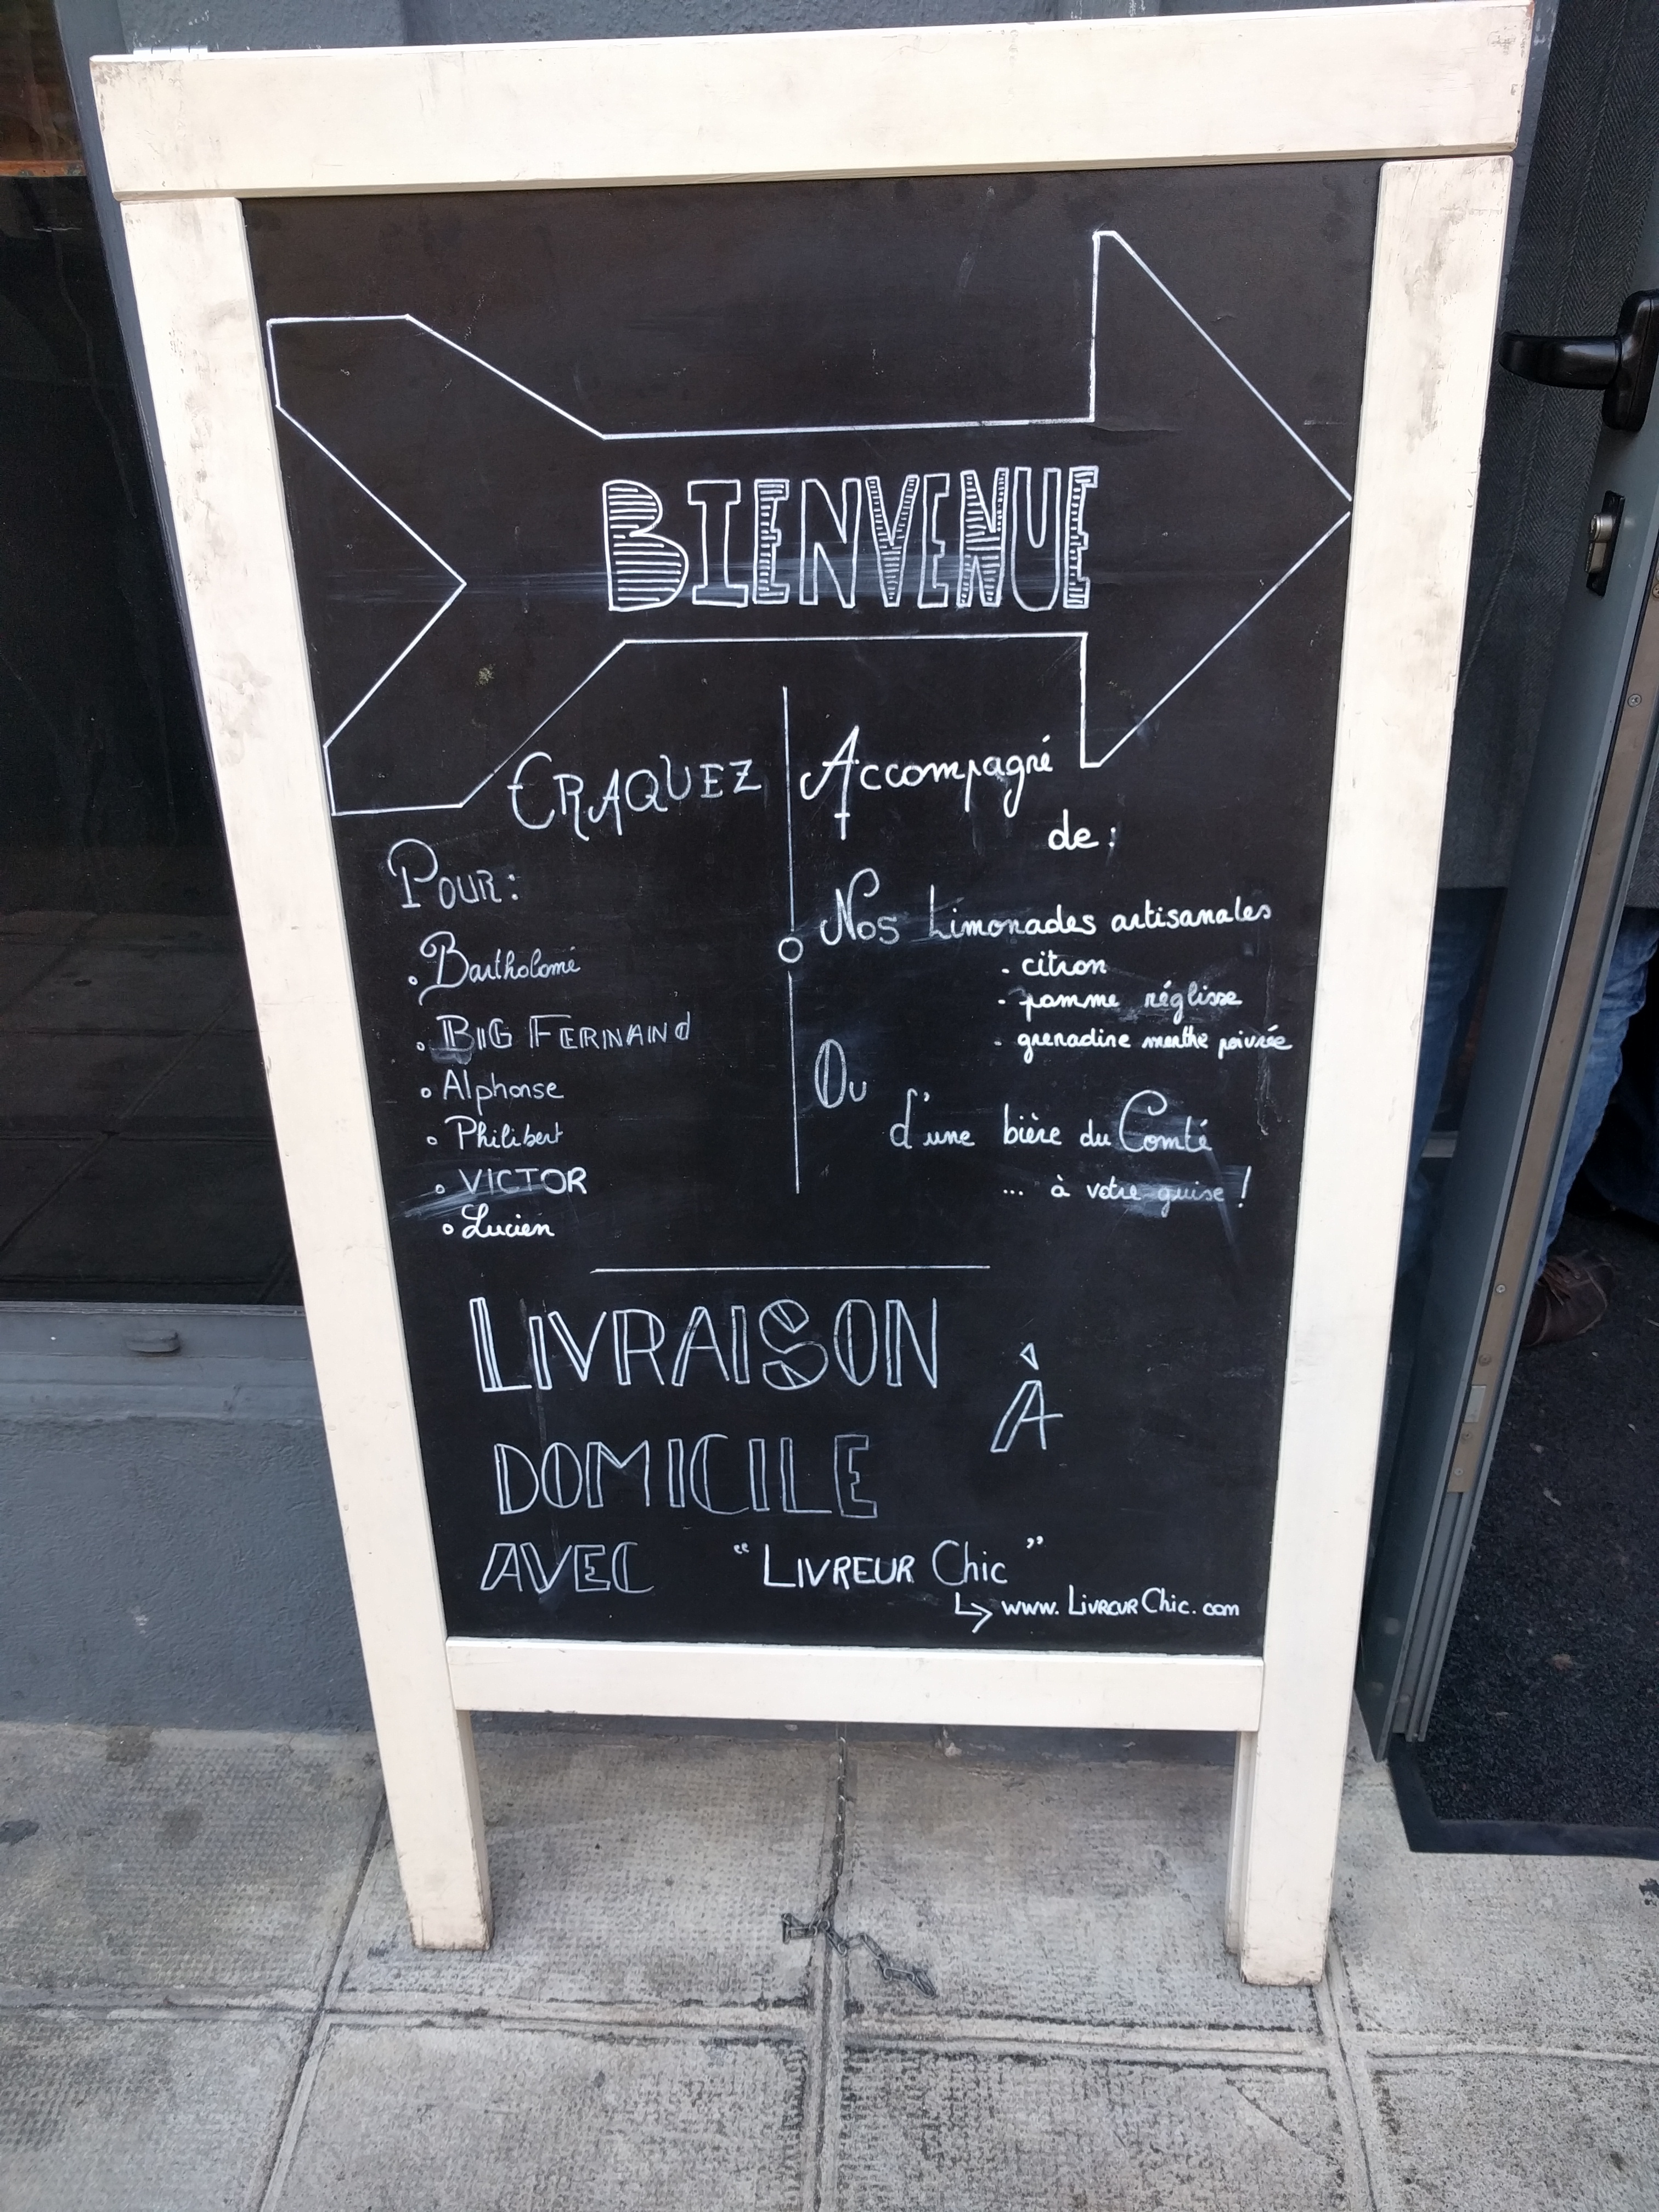 BIENVENUE
CRAQUEZ
POUR:
. Bartholomé
. BIG FERNANd
o Alphonse
o Philibert
o VICTOR
o Lucien
Accompagné
de :
Nos Limonades artisanales
- citron
- pomme réglisse
- grenadine menthe poivrée
Ou
d'une bière du Comté
... à votre guise !
LIVRAISON À
DOMICILE
AVEC “LIVREUR Chic”
www.LivreurChic.com